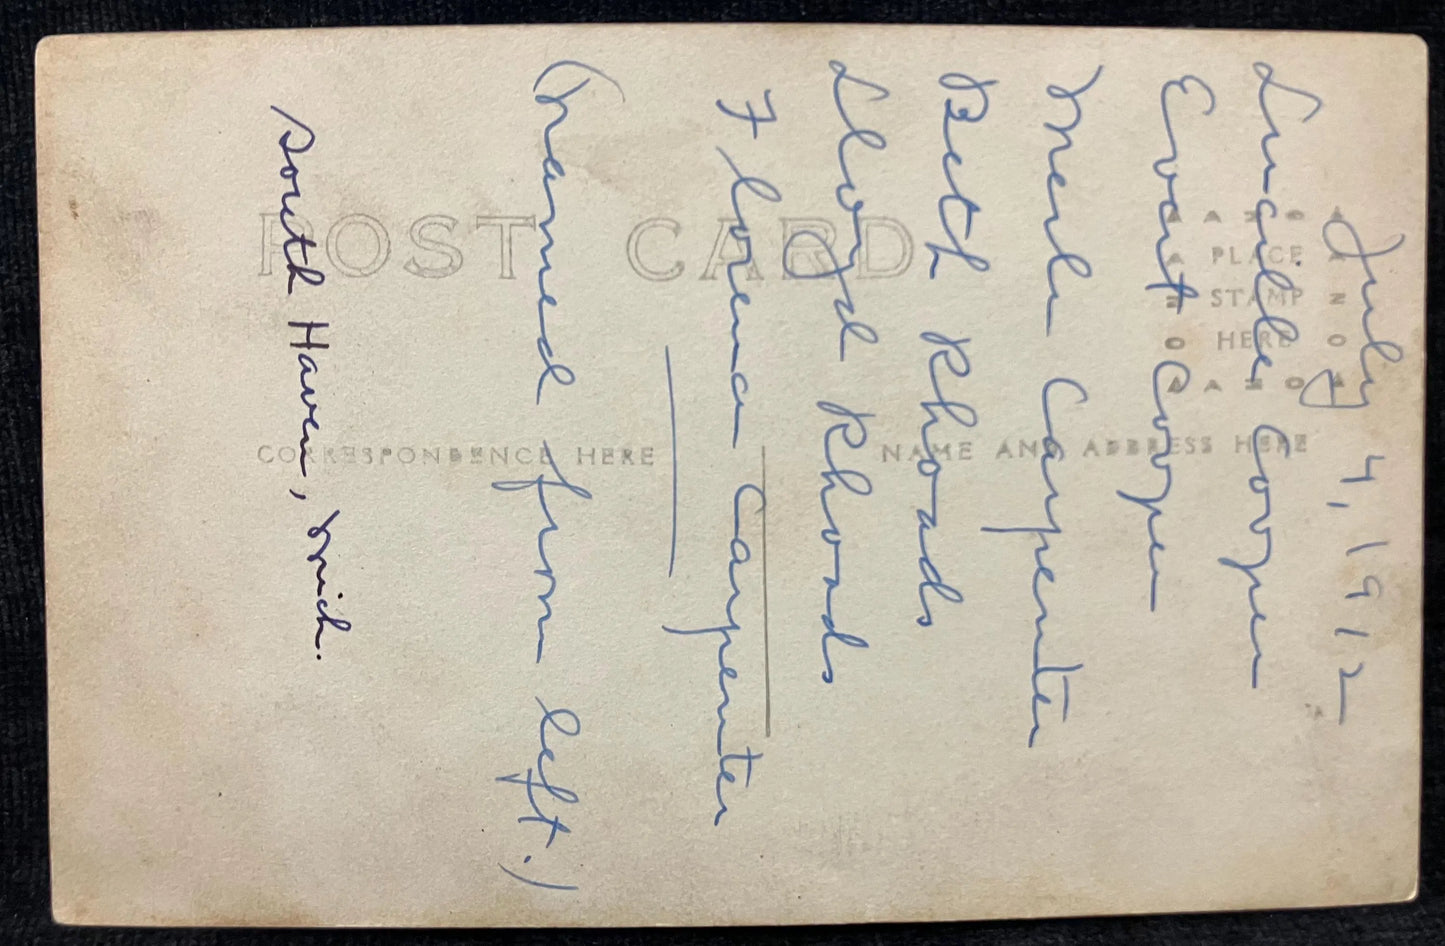 July 4, 1912
Lucille Cooper
Evart Cooper
Merle Carpenter
Beth Rhoads
Lloyd Rhoads
Florence Carpenter
(named from left.)
South Haven, Mich.
POST CARD
CORRESPONDENCE HERE
NAME AND ADDRESS HERE
AZOA
PLACE
STAMP
HERE